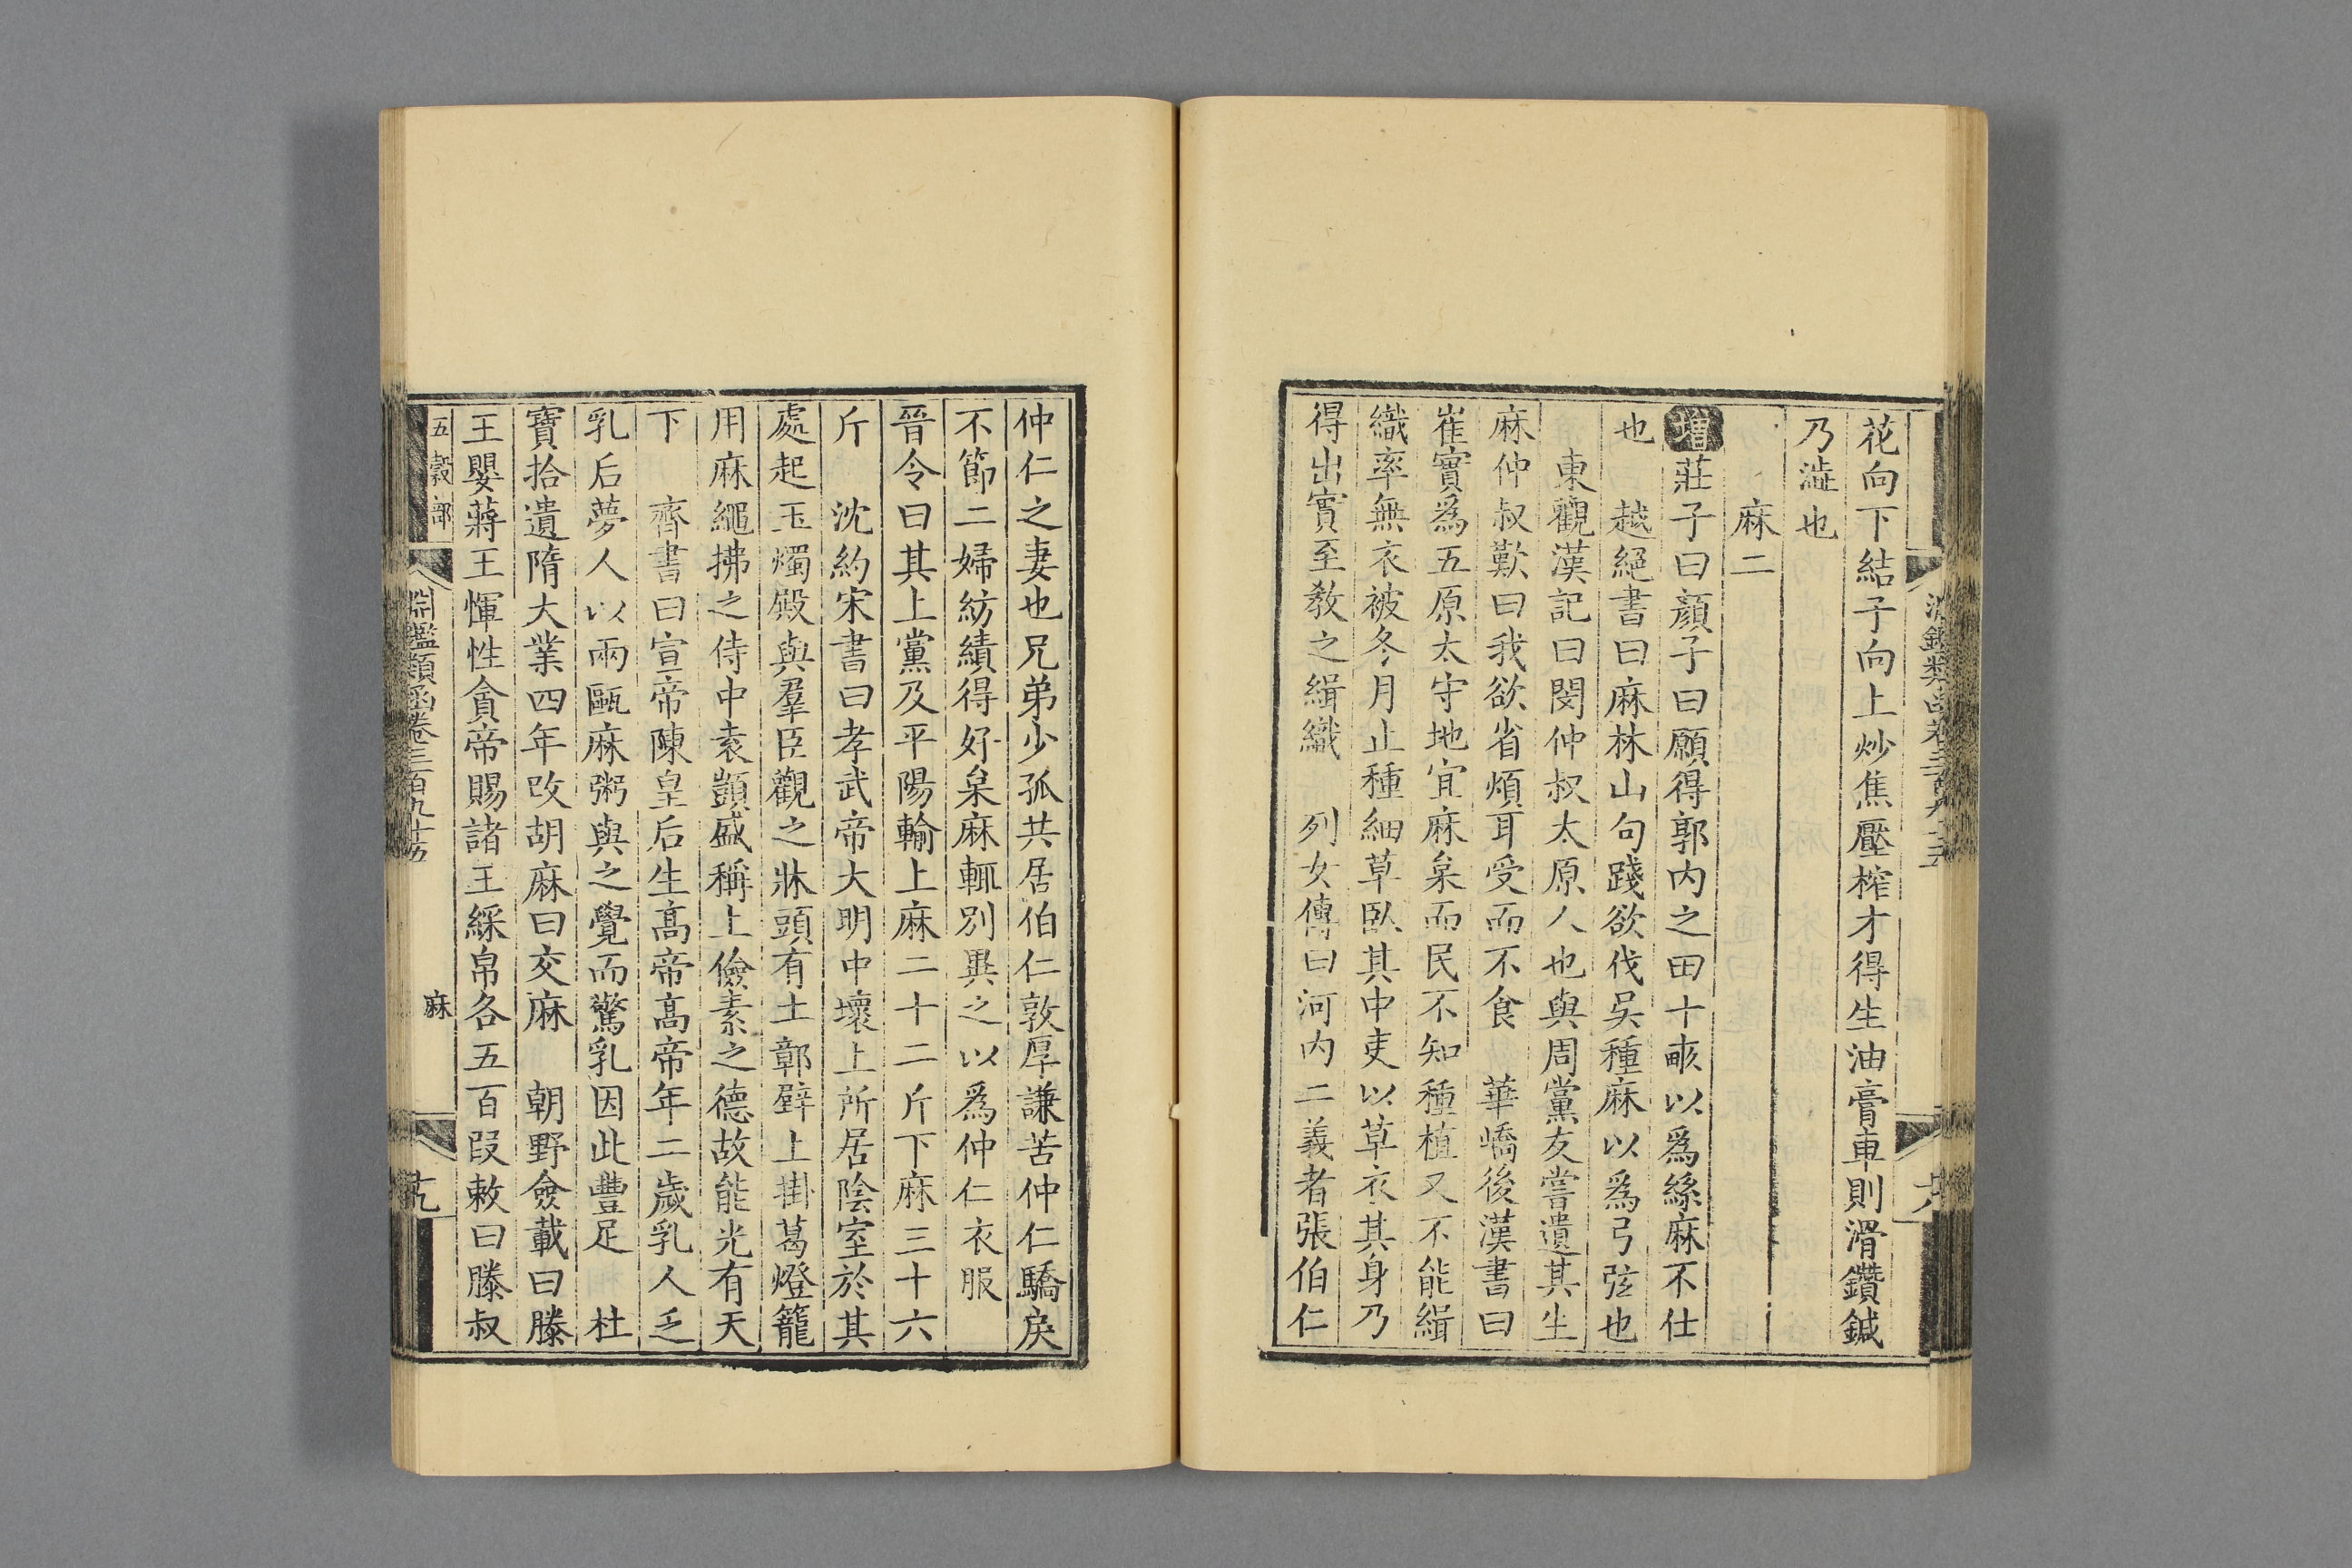 花向下結子向上炒焦壓榨才得生油膏車則滑鑽鍼
乃澁也
麻二
增莊子曰顏子曰願得郭內之田十畞以爲絲麻不仕
也　越絕書曰麻林山句踐欲伐吳種麻以爲弓弦也
東觀漢記曰閔仲叔太原人也與周黨友嘗遺其生
麻仲叔歎曰我欲省煩耳受而不食　華嶠後漢書曰
崔寔爲五原太守地宜麻枲而民不知種植又不能緝
織率無衣被冬月止種細草臥其中吏以草衣其身乃
得出寔至敎之緝織　列女傳曰河內二義者張伯仁
仲仁之妻也兄弟少孤共居伯仁敦厚謙苦仲仁驕戾
不節二婦紡績得好枲麻輒別異之以爲仲仁衣服
晉令曰其上黨及平陽輸上麻二十二斤下麻三十六
斤　沈約宋書曰孝武帝大明中壞上所居陰室於其
處起玉燭殿與羣臣觀之牀頭有土鄣壁上掛葛燈籠
用麻繩拂之侍中袁顗盛稱上儉素之德故能光有天
下　齊書曰宣帝陳皇后生高帝高帝年二歲乳人乏
乳后夢人以兩甌麻粥與之覺而驚乳因此豐足　杜
寶拾遺隋大業四年改胡麻曰交麻　朝野僉載曰滕
王嬰蔣王惲性貪帝賜諸王綵帛各五百叚敕曰滕叔
五穀部
淵鑑類函卷三百九十五
麻
十九